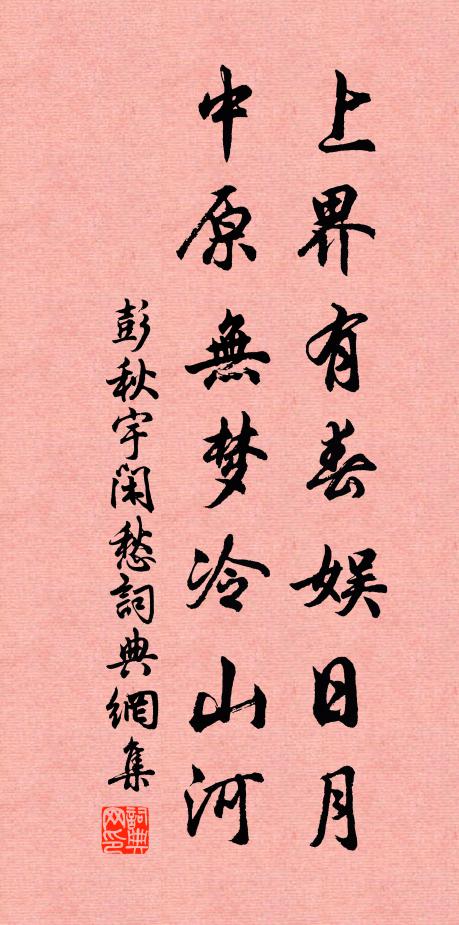 上界有春娱日月
中原無梦冷山河
彭秋宇闲愁詞典網集
詞典网印